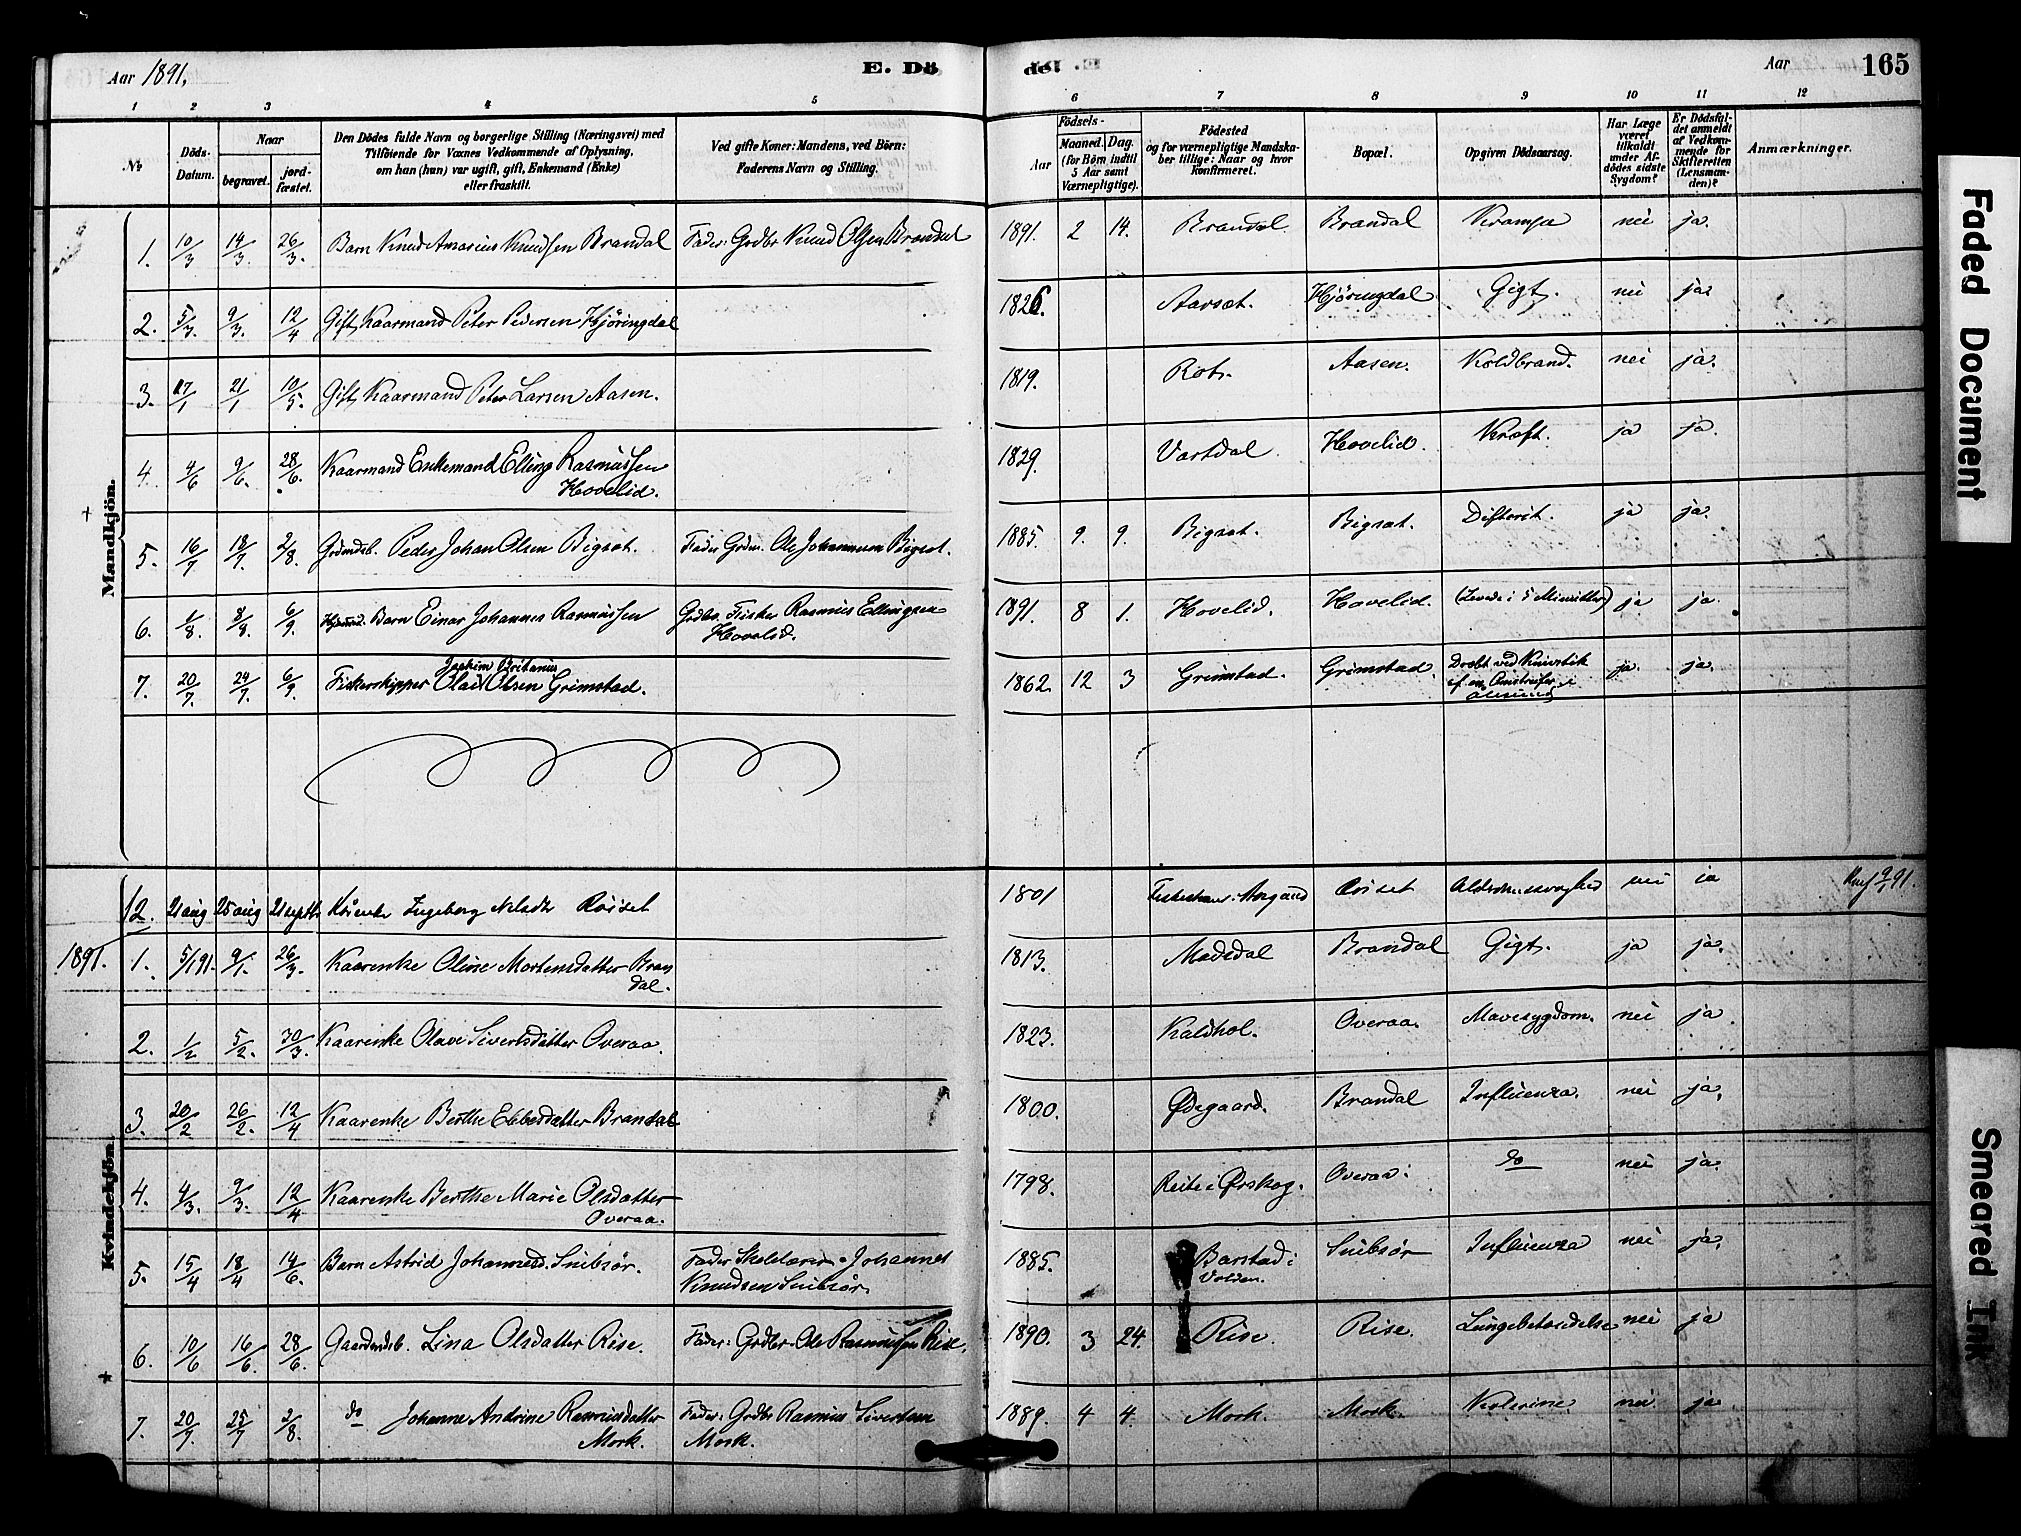 Aar 1891.
E. Dö
de.
Aar
165
1 2 3 4 5 6 7 8 9 10 11 12
No
Döds-Datum.
Naar
begravet.
jord-fæstet.
Den Dödes fulde Navn og borgerlige Stilling (Næringsvei) med
Tilföiende for Voxnes Vedkommende af Oplysning,
om han (hun) var ugift, gift, Enkemand (Enke)
eller fraskilt.
Ved gifte Koner: Mandens, ved Börn:
Faderens Navn og Stilling.
Födsels-
Aar
Maaned. Dag.
(for Börn indtil
5 Aar samt
Værnepligtige).
Födested
og for værnepligtige Mandska-
ber tillige: Naar og hvor
konfirmeret.
Bopæl.
Opgiven Dödsaarsag.
Har Læge
været
tilkaldt
under Af-
dödes sidste
Sygdom?
Er Dödsfal-
det anmeldt
af Vedkom-
mende for
Skifteretten
(Lensman-
den)?
Anmærkninger.
Mandkjön.
1. 10/3 14/3. 26/3. Barn Knud Amarius Knudsen Brandal Fader: Grdbr Knud Olsen Brandal 1891. 2 14. Brandal Brandal Krampa nei ja.
2. 5/3. 9/3. 12/4 Gift Kaarmand Peter Pedersen Hjöringdal 1826. Aarsæt. Hjöringdal Gigt. nei ja.
3. 17/1 21/1 10/5. Gift Kaarmand Peter Larsen Aasen. 1819. Rots. Aasen. Koldbrand. nei ja.
4. 4/6 9/6. 28/6. Kaarmand Enkemand Elling Rasmussen
Hovelid. 1829. Vartdal. Hovelid. Kræft. ja ja.
5. 16/7 18/7. 2/8. Grdmdsb. Peder Johan Olsen Bigsæt. Fader Grdm. Ole Johannesen Bigset. 1885. 9. 9. Bigsæt. Bigsæt. Difterit. ja ja.
6. 1/8. 8/8. 6/9. Barn Einar Johannes Rasmussen Grdbr. Fisker Rasmus Ellingsen
Hovelid. 1891. 8 1. Hovelid. Hovelid. (Levede i 5 Minutter) ja ja.
Joakim Britanius
7. 20/7. 24/7. 6/9. Fiskerskipper Olai Olsen Grimstad. 1862. 12 3 Grimstad. Grimstad. Dræbt ved Knivstik
af en i
Aalesund ja. ja.
Kvindekjön.
12. 21 aug 25 aug 21 septbr Kårenke Ingeborg Nilsdtr Röiset 1801 Röiset Alderdomssvaghed nei ja 9/1 91.
1891. 1. 5/1 91. 9/1. 26/3. Kaarenke Oline Mortensdatter Bran
dal. 1813. Madsdal Brandal Gigt. ja ja.
2. 1/2 5/2. 30/3. Kaarenke Olave Sivertsdatter Overaa. 1823. Kaldhol. Overaa. Mavesygdom. nei ja.
3. 20/2 26/2. 12/4 Kaarenke Berthe Ebbesdatter Brandal 1800. Ødegaard. Brandal Influenza. nei ja.
4. 4/3. 9/3. 12/4 Kaarenke Berthe Marie Olsdatter
Overaa. 1798. Reite i Ørskog. Overaa. do nei ja.
5. 15/4 18/4 14/6. Barn Astrid Johannesd. Snibsör. Fader Skolelærer Johannes
Knudsen Snibsör. 1885. Barstad i
Volden. Snibsör Influenza nei ja.
6. 10/6 16/6. 28/6. Gaardmdsb. Lina Olsdatter Rise. Fader: Grdbr. Ole Rasmussen Rise. 1890. 3 24. Rise. Rise. Lungebetændelse nei ja
7. 20/7. 25/7 2/8. do Johanne Andrine Rasmusdatter
Mork. Fader: Grdbr Rasmus Sivertsen
Mork. 1889. 4 4. Mork. Mork. Kolerine nei ja.
Faded Document
Smeared Ink